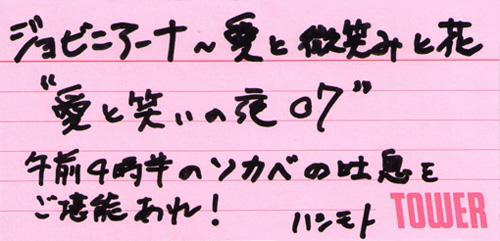 ジョビニアーナ～愛と微笑みと花
“愛と笑いの夜07”
午前4時半のソカベの吐息を
ご堪能あれ!
ハシモト
TOWER